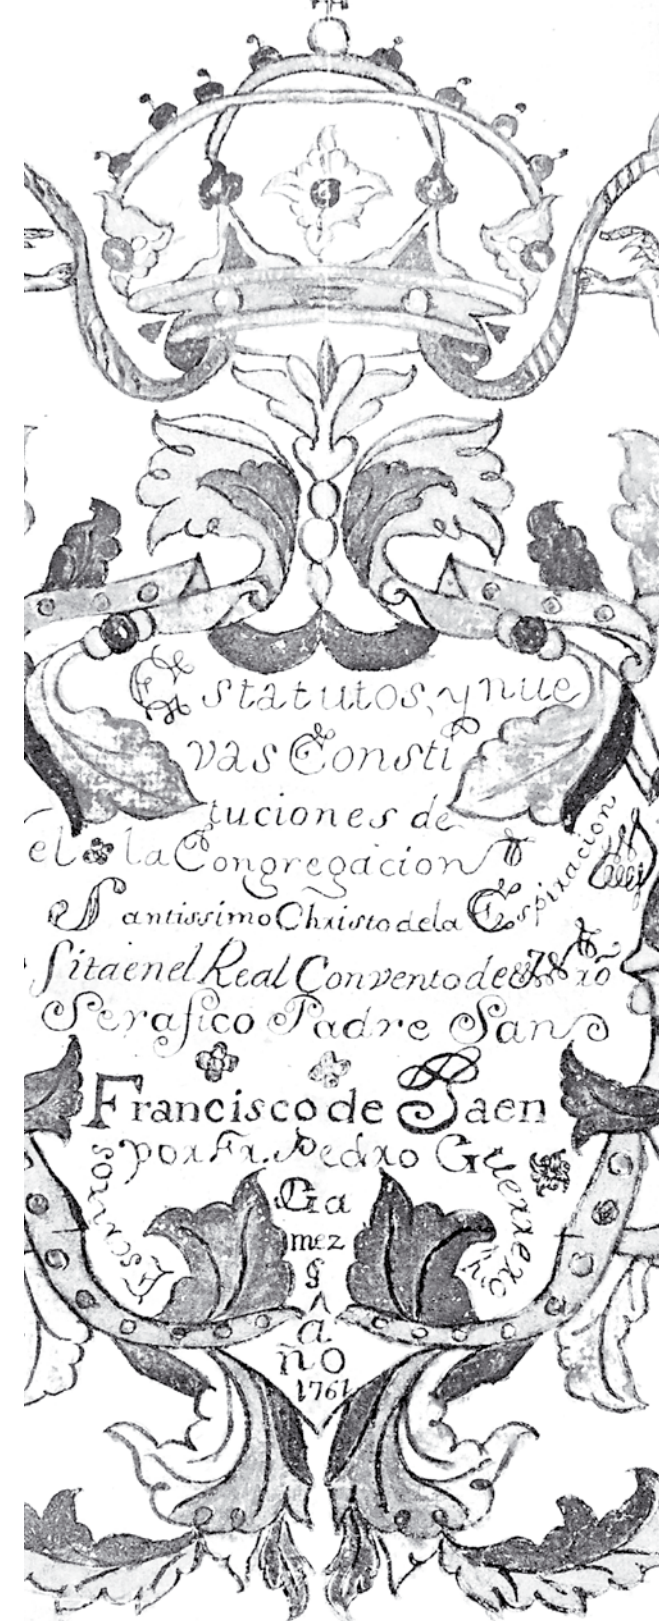 Estatutos, y nue
vas Consti
tuciones de
el la Congregacion
Santissimo Christo dela Espiracion
Sita en el Real Convento de N. xõ
Serafico Padre San
Francisco de Jaen
Escritos por Fr. Pedro Guerrero, y
Ga
mez
§
A
a
ño
1761